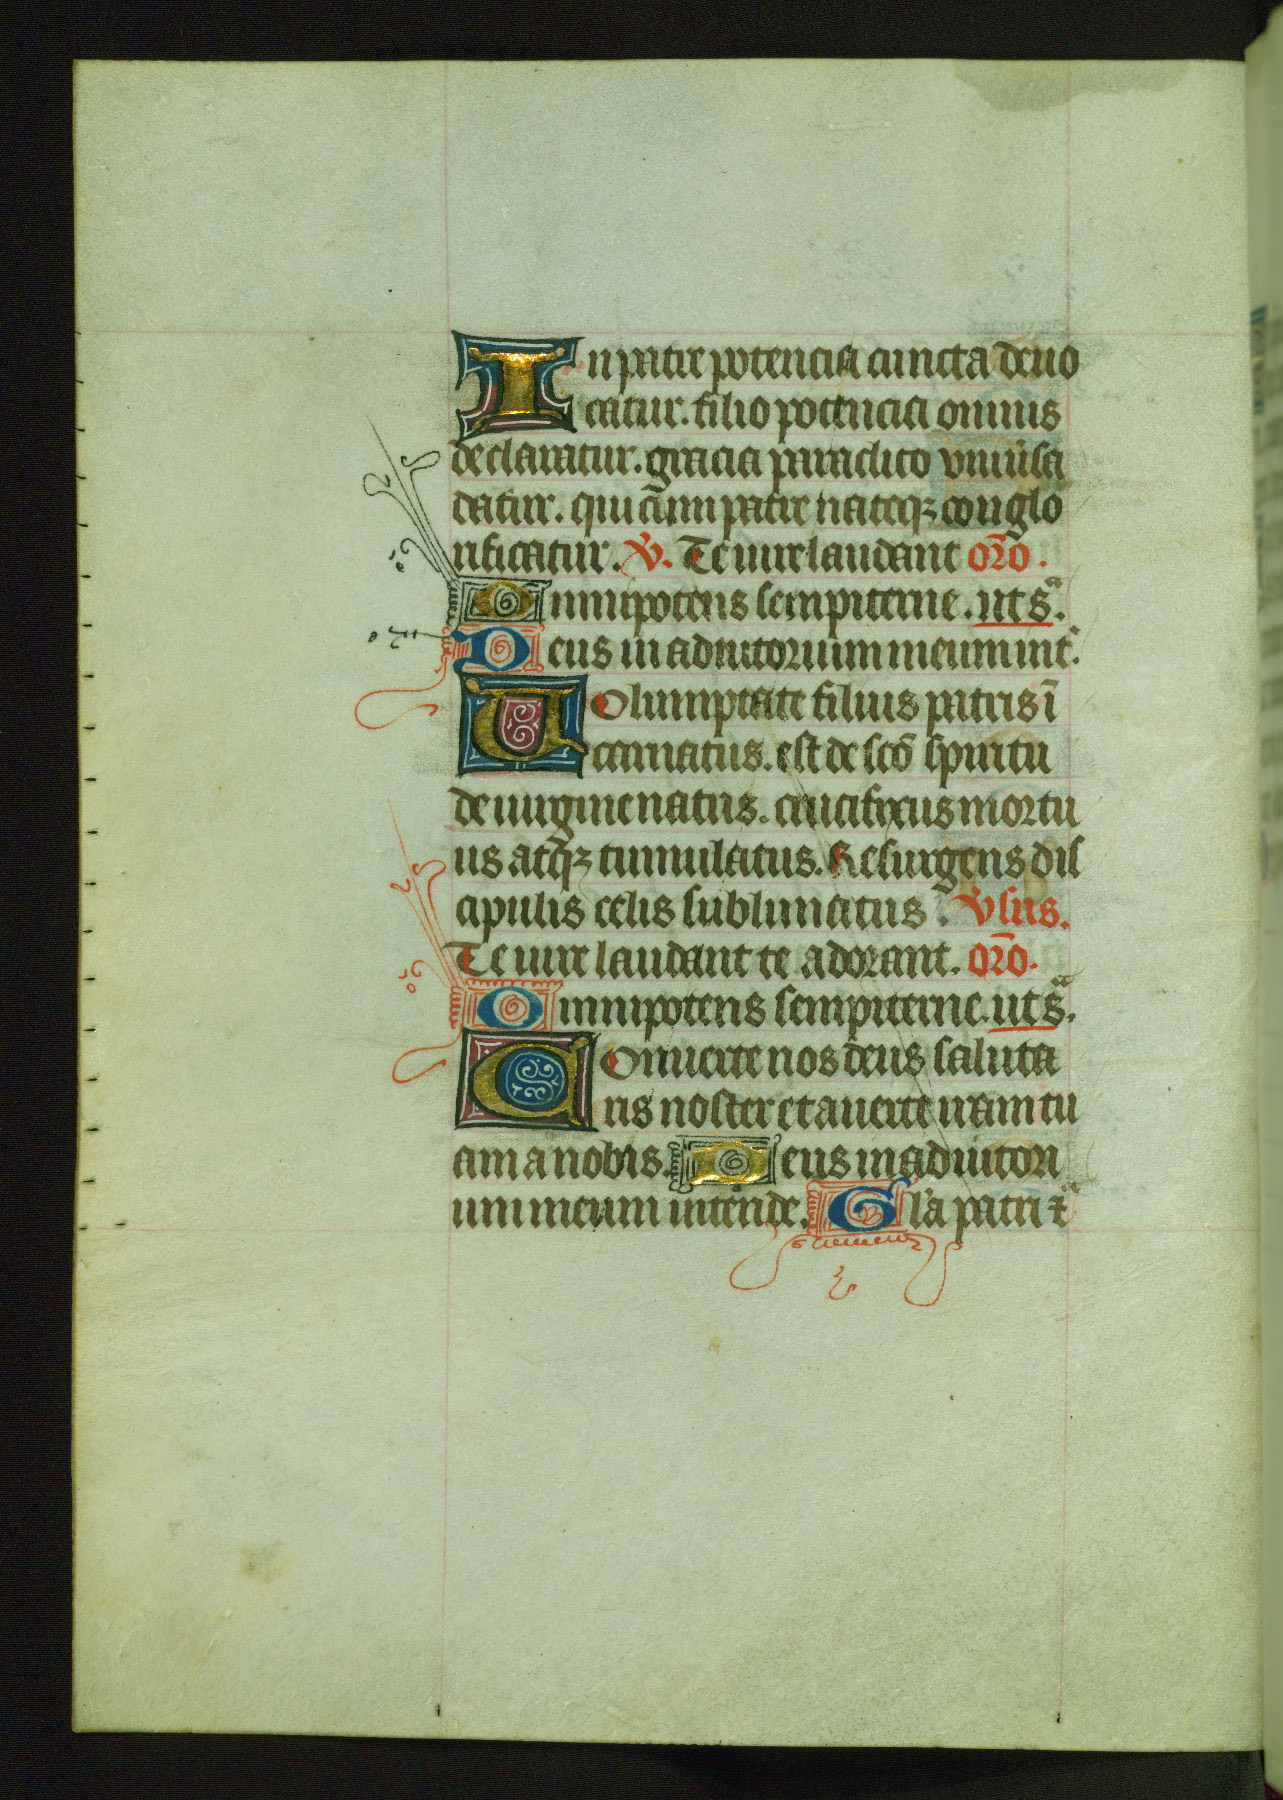 In patre potencia cuncta deuo
catur. filio potencia omnis
declaratur. gracia paraclito vniu̅sa
datur. qui cu̅m patre nateqꝫ conglo
rificatur. V̅. Te iure laudant or̅o.
Omnipotens sempiterne. ut sᵃ.
Deus in adiutorium meum int̅.
Uolumptate filius patris i̅
carnatus. est de sc̅o spiritu
de uirgine natus. crucifixus mortu
us atqꝫ tumulatus. Resurgens dis
cipulis celis sublimatus. Vsus.
Te iure laudant te adorant. or̅o.
Omnipotens sempiterne. ut sᵃ.
Conuerte nos deus saluta
ris noster et auerte iram tu
am a nobis. Deus in adiutori
um meum intende. Gl̅a patri ⁊ᵃ